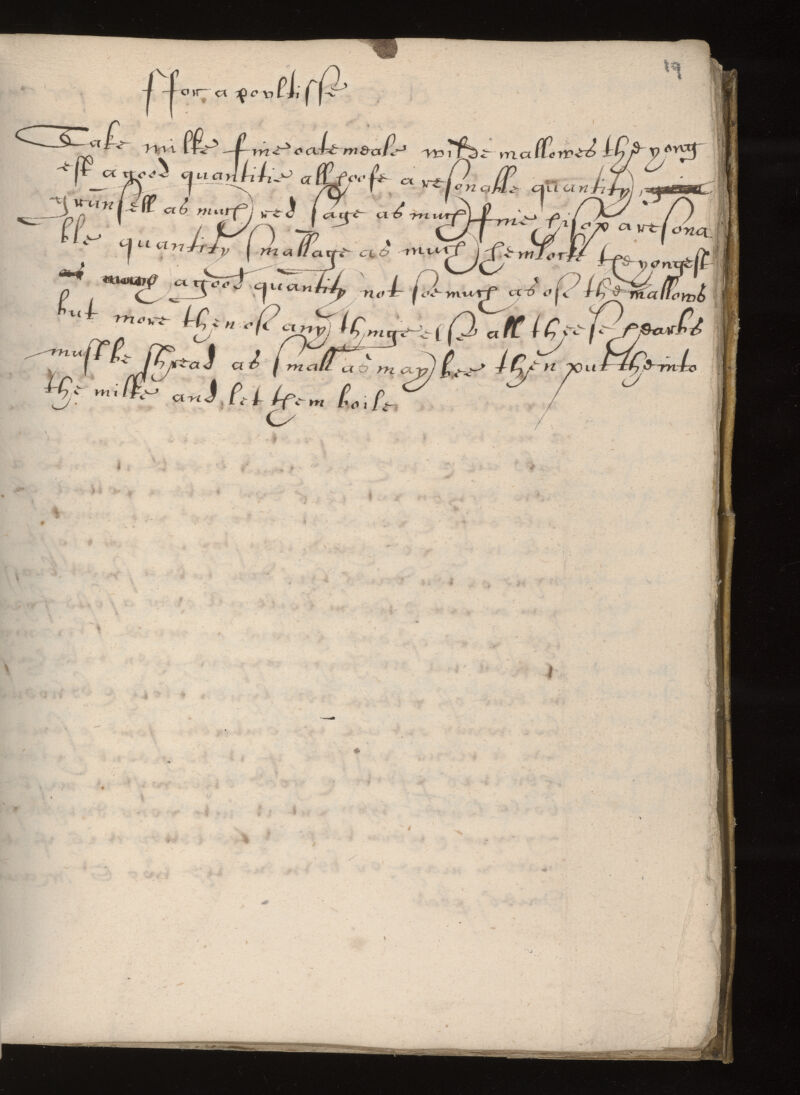 19
ffor a poultisse
Take milke fine oatemeale wilde mallowes the yong
est a good quantitie allhoofe a resonable quantity
grunsell as much red sage as much fine hisop a resona
ble quantity smallage as much hemlocke the yongest
a good quantity not soe much as of the mallows
but more then of any thinge else all theese hearbs
must be shread as small as may bee then put the into
the milke and let them boile